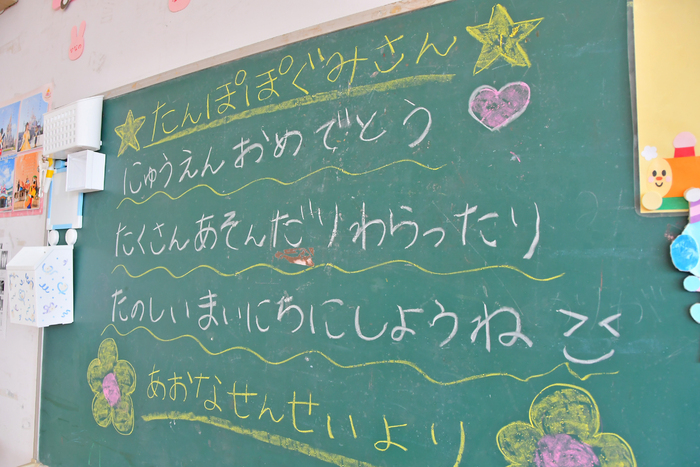 たんぽぽぐみさん
にゅうえんおめでとう
たくさんあそんだりわらったり
たのしいまいにちにしようね
あおなせんせいより